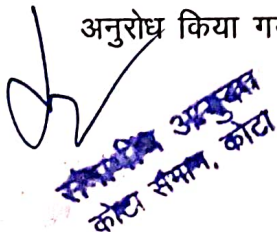 अनुरोध किया ग
संभागीय आयुक्त
कोटा संभाग, कोटा